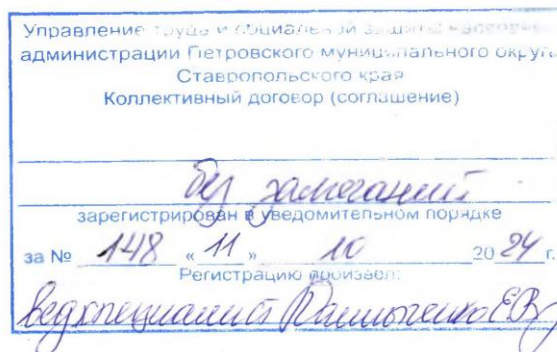 Управление труда и социальной защиты населения
администрации Петровского муниципального округа
Ставропольского края
Коллективный договор (соглашение)
без замечаний
зарегистрирован в уведомительном порядке
за № 148 « 11 » 10 20 24 г.
Регистрацию произвел:
вед.специалист ЕВ